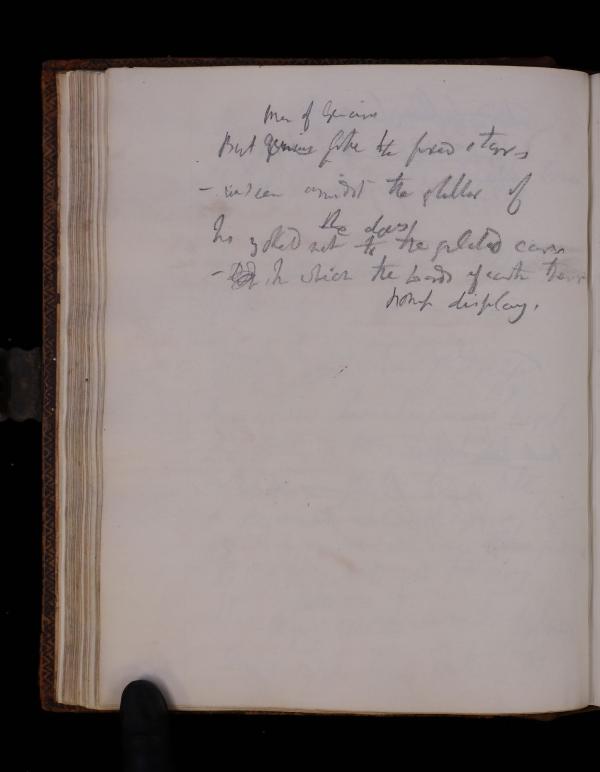 Men of Genius
But genius like the fixed stars
- unseen amidst the glitter of
the days
his to the gilded cars
- In which the Lords of earth their
display.